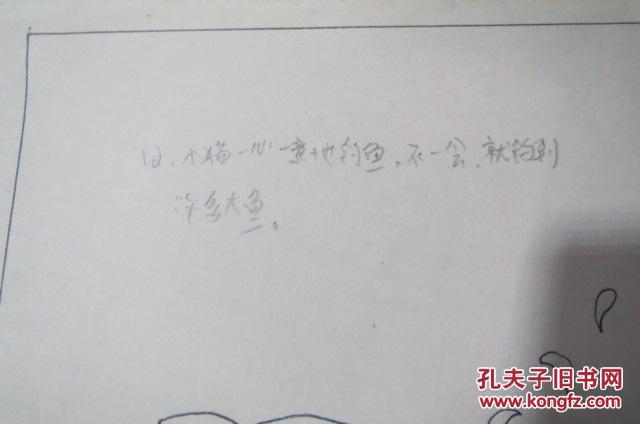 12、小猫一心一意地钓鱼，不一会，就钓到
许多大鱼。
孔夫子旧书网
www.kongfz.com